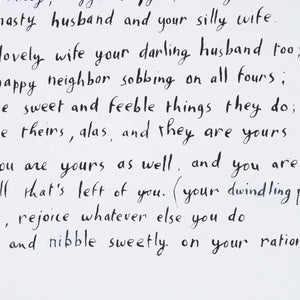 nasty husband and your silly wife.
lovely wife your darling husband too;
happy neighbor sobbing on all fours;
e sweet and feeble things they do;
e theirs, alas, and they are yours.
ou are yours as well, and you are
ll that's left of you. (your dwindling p
, rejoice whatever else you do
and nibble sweetly on your ration